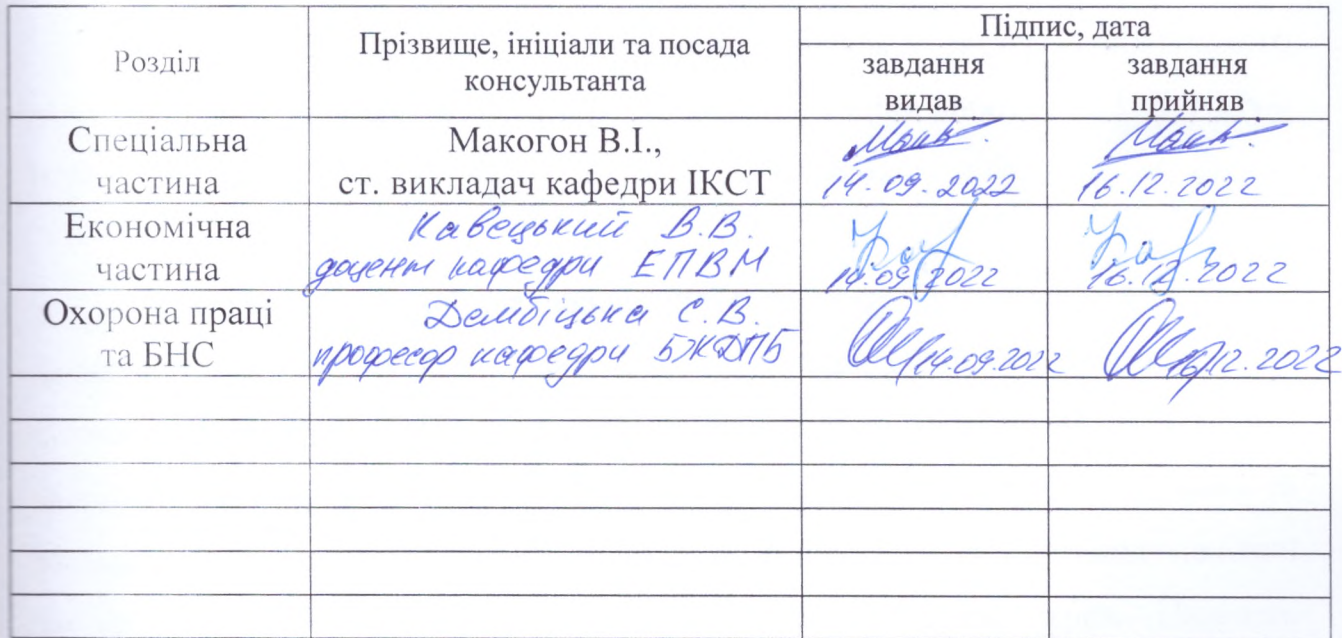 Розділ
Прізвище, ініціали та посада
консультанта
Підпис, дата
завдання
видав
завдання
прийняв
Спеціальна
частина
Макогон В.І.,
ст. викладач кафедри ІКСТ
14.09.2022
16.12.2022
Економічна
частина
Кавецький В.В.
доцент кафедри ЕПВМ
14.09.2022
16.12.2022
Охорона праці
та БНС
Дембіцька С.В.
професор кафедри БЖДПБ
14.09.2022
16.12.2022